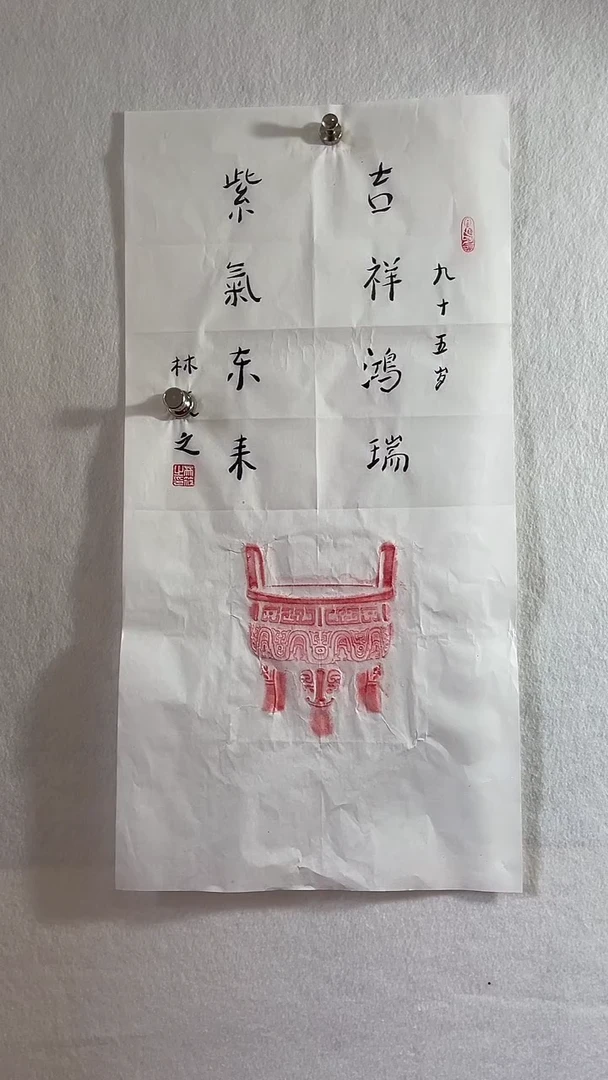 九十五岁
吉祥鸿瑞
紫氣东来
林 之